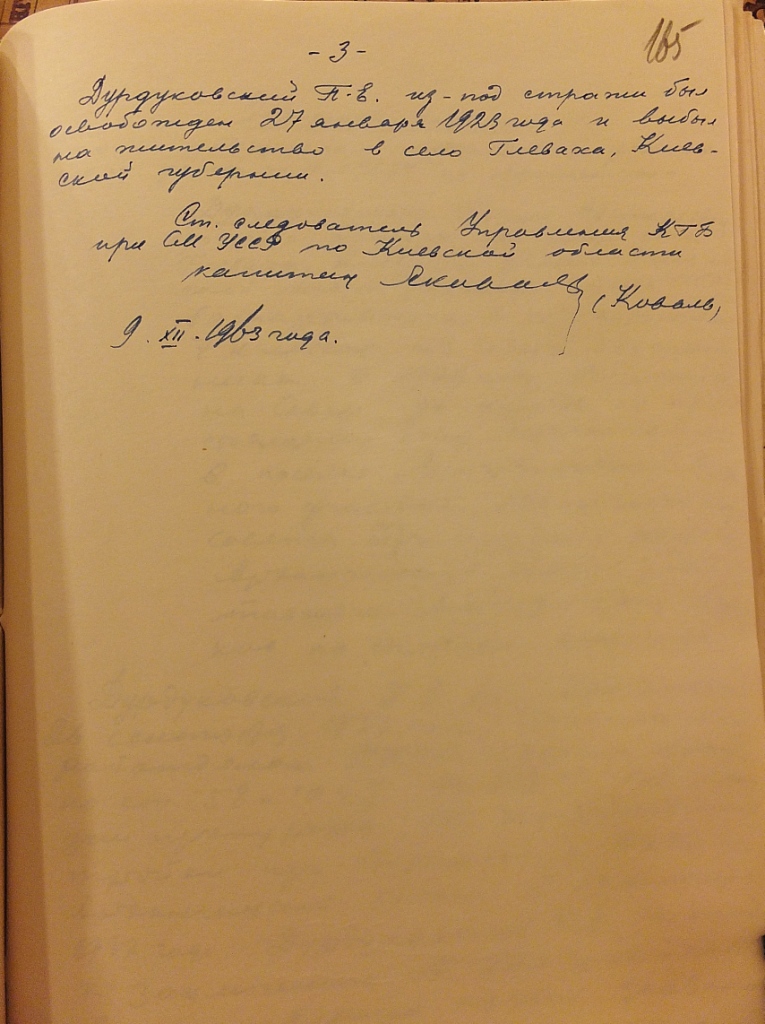 - 3 -
165
Дурдуковский П.Е. из-под стражи был
освобожден 27 января 1923 года и выбыл
на жительство в село Глеваха, Киев-
ской губернии.
Ст. следователь Управления КГБ
при СМ УССР по Киевской области
капитан
(Коваль)
9. XII. 1963 года.